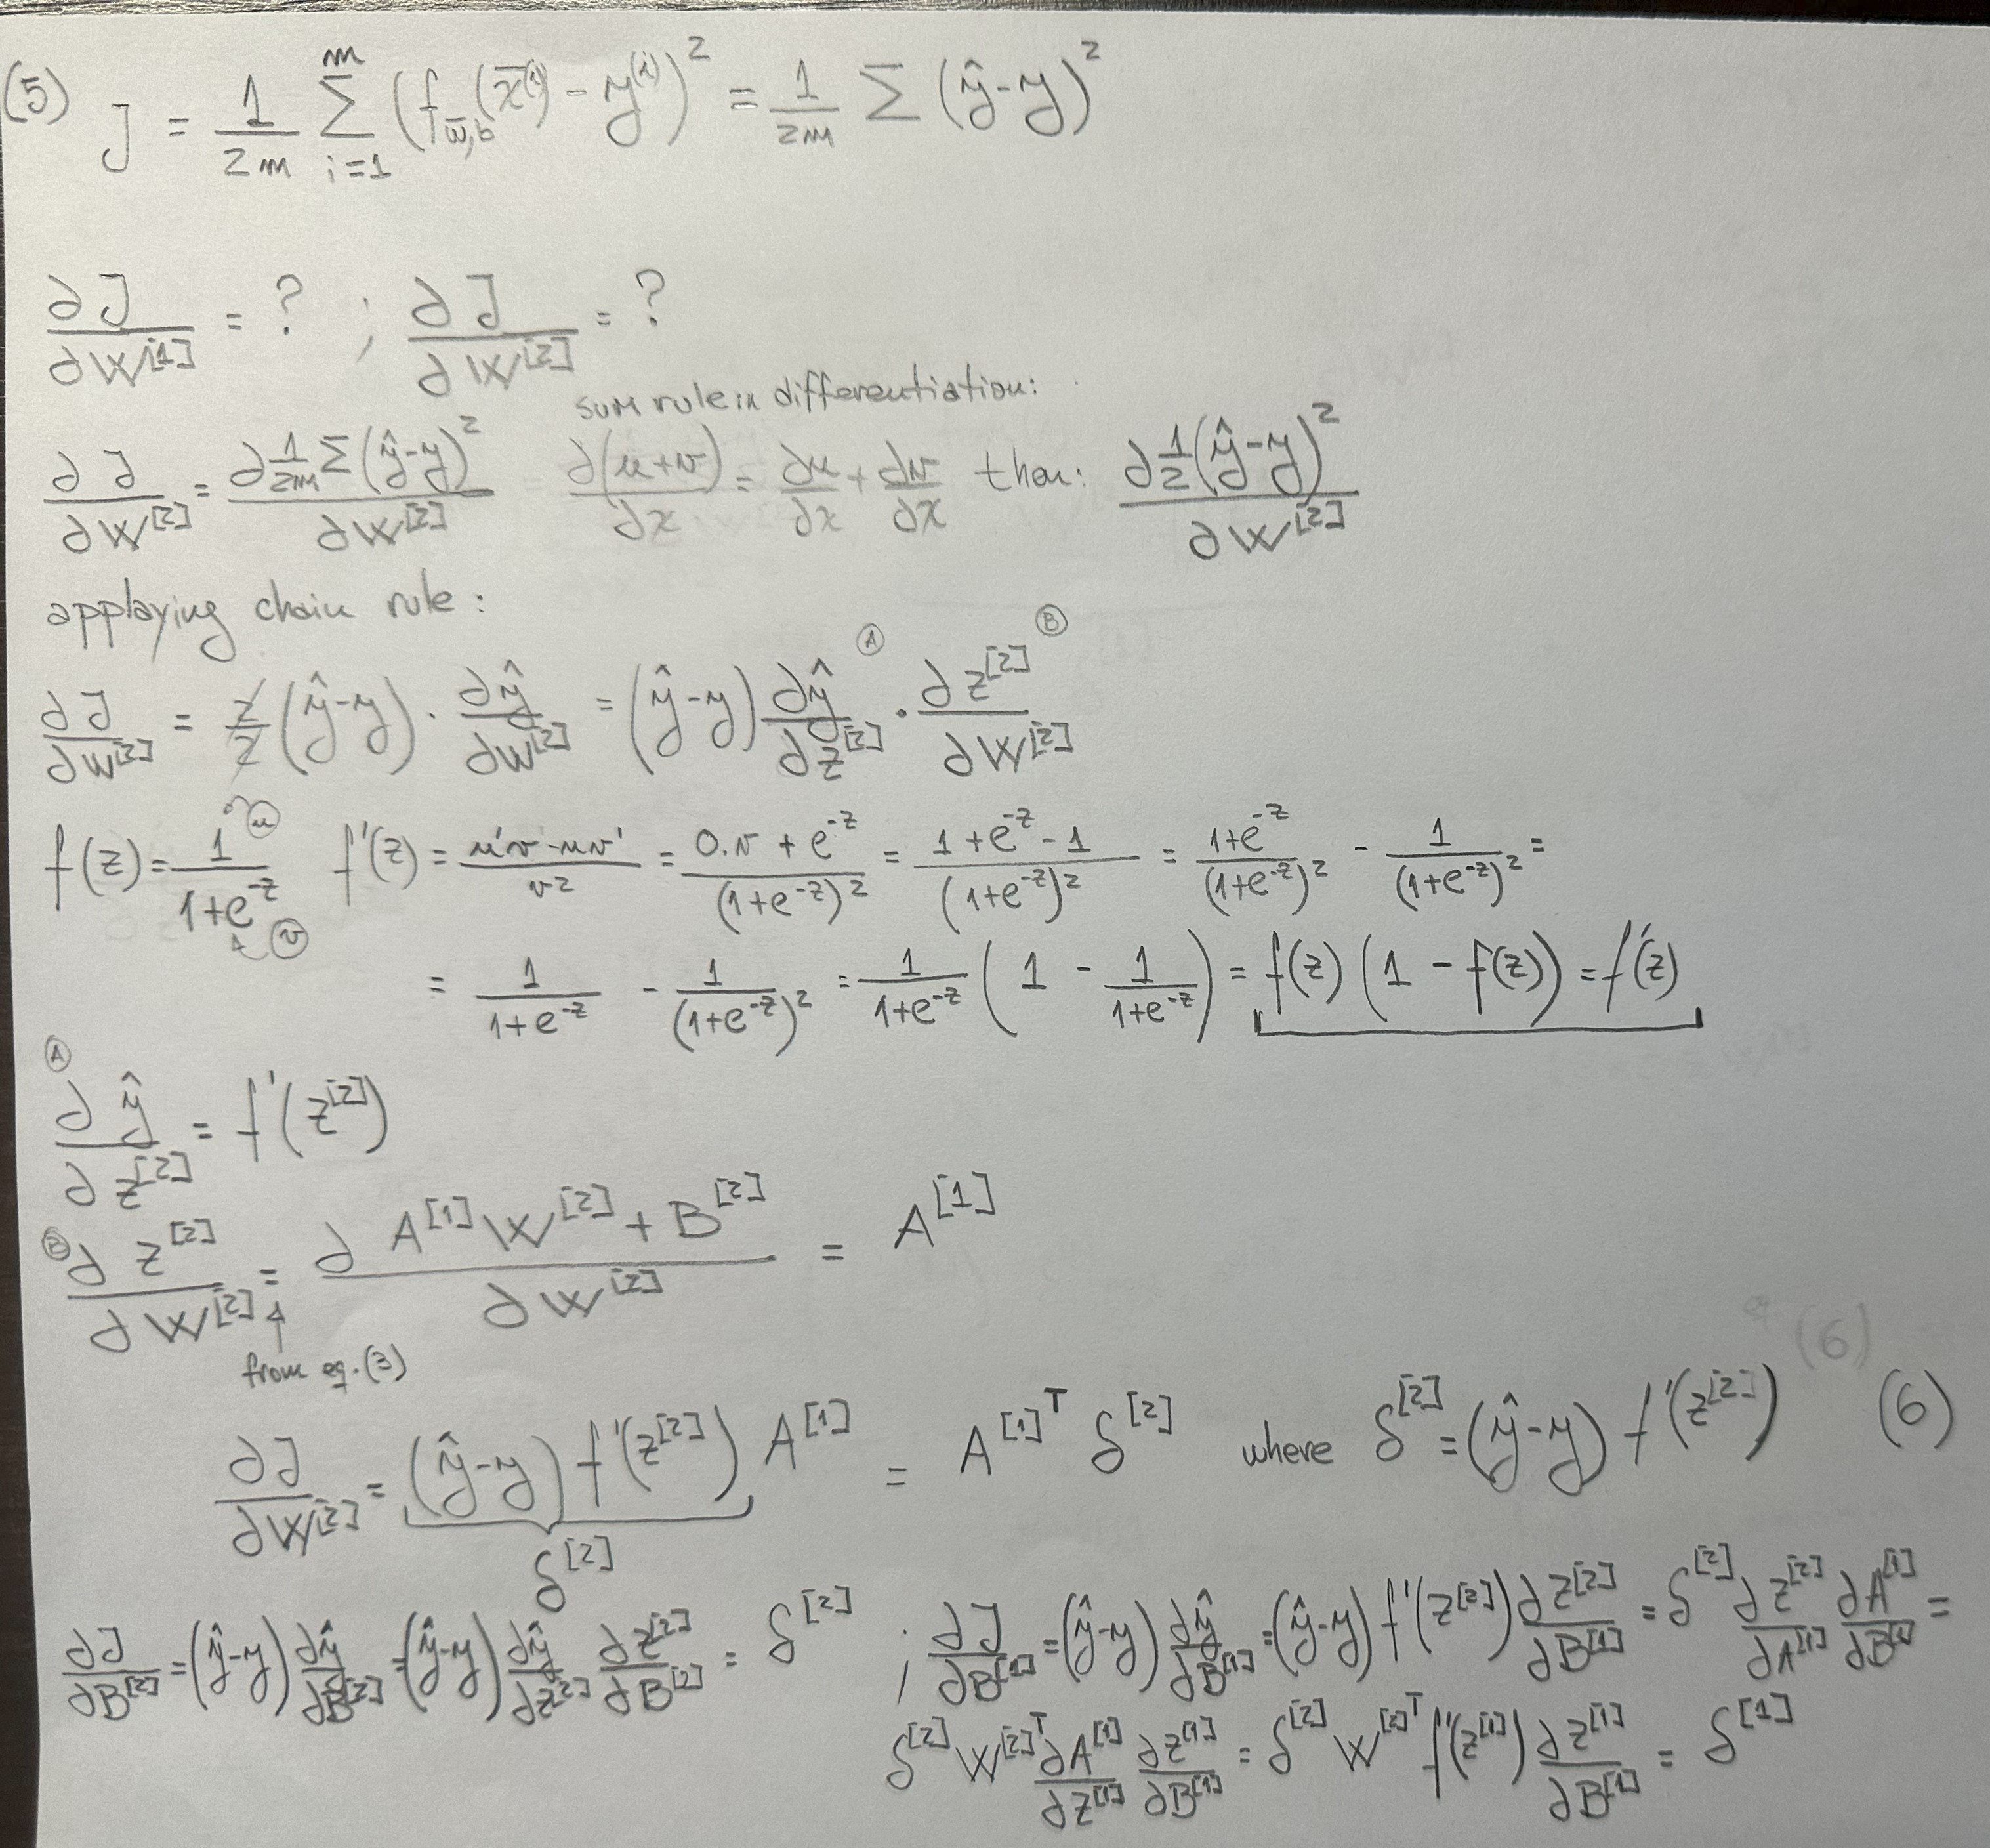 (5) J = 1/2m m∑i=1 (f_w̄,b(x̄^(i)) - y^(i))² = 1/2m ∑ (ŷ-y)²
∂J/∂W^[1] = ? ; ∂J/∂W^[2] = ?
sum rule in differentiation:
∂J/∂W^[2] = ∂ 1/2m ∑(ŷ-y)² / ∂W^[2] ∂(u+v)/∂x = ∂u/∂x + ∂v/∂x then: ∂ 1/2 (ŷ-y)² / ∂W^[2]
applaying chain rule:
Ⓐ Ⓑ
∂J/∂W^[2] = 2/2 (ŷ-y) · ∂ŷ/∂W^[2] = (ŷ-y) ∂ŷ/∂z^[2] · ∂z^[2]/∂W^[2]
f(z) = 1/(1+e^-z) ⓤ ⓥ f'(z) = (u'v-uv')/v² = (0.v + e^-z)/(1+e^-z)² = (1+e^-z - 1)/(1+e^-z)² = (1+e^-z)/(1+e^-z)² - 1/(1+e^-z)² =
= 1/(1+e^-z) - 1/(1+e^-z)² = 1/(1+e^-z) (1 - 1/(1+e^-z)) = f(z) (1 - f(z)) = f'(z)
Ⓐ ∂ŷ/∂z^[2] = f'(z^[2])
Ⓑ ∂z^[2]/∂W^[2] = ∂ A^[1] W^[2] + B^[2] / ∂W^[2] = A^[1]
from eq.(3)
(6)
∂J/∂W^[2] = (ŷ-y) f'(z^[2]) A^[1] = A^[1]^T δ^[2] where δ^[2] = (ŷ-y) f'(z^[2]) (6)
δ^[2]
∂J/∂B^[2] = (ŷ-y) ∂ŷ/∂B^[2] = (ŷ-y) ∂ŷ/∂z^[2] ∂z^[2]/∂B^[2] = δ^[2] ; ∂J/∂B^[1] = (ŷ-y) ∂ŷ/∂B^[1] = (ŷ-y) f'(z^[2]) ∂z^[2]/∂B^[1] = δ^[2] ∂z^[2]/∂A^[1] ∂A^[1]/∂B^[1] =
δ^[2] W^[2]^T ∂A^[1]/∂z^[1] ∂z^[1]/∂B^[1] = δ^[2] W^[2]^T f'(z^[1]) ∂z^[1]/∂B^[1] = δ^[1]